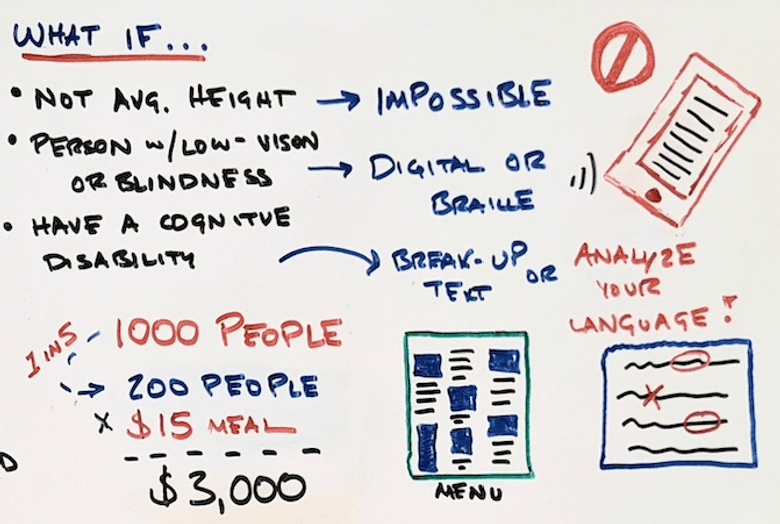 WHAT IF...
• NOT AVG. HEIGHT → IMPOSSIBLE
• PERSON W/LOW-VISON
OR BLINDNESS
→ DIGITAL OR
BRAILLE
• HAVE A COGNITVE
DISABILITY
BREAK-UP
TEXT
OR
ANALYZE
YOUR
LANGUAGE!
1 IN 5
1000 PEOPLE
→ 200 PEOPLE
X $15 MEAL
$3,000
MENU